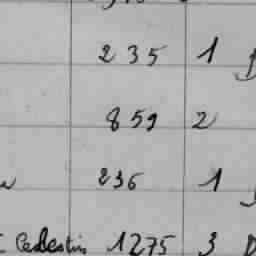 235 1
859 2
236 1
Celestin 1275 3